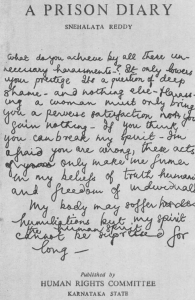 A PRISON DIARY
SNEHALATA REDDY
What do you achieve by all these un-
necessary harassments? It only lowers
your prestige. It's a question of deep
shame - and nothing else - Harass-
ing a woman must only bring
you a perverse satisfaction
gain nothing - If you think
you can break my spirit - I'm
afraid you are wrong, these acts
only make me firmer
in my beliefs of truth humans
and freedom of individuals
My body may suffer
humiliations but my spirit
the human spirit
cannot be suppressed for
long —
Published by
HUMAN RIGHTS COMMITTEE
KARNATAKA STATE